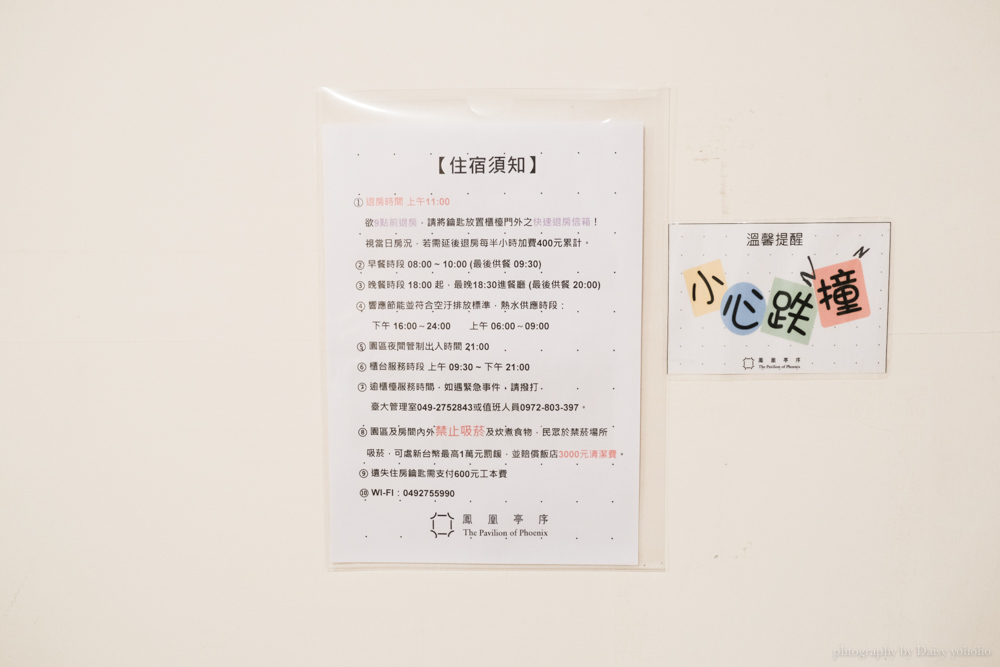 【住宿須知】
① 退房時間 上午11:00
欲9點前退房,請將鑰匙放置櫃檯門外之快速退房信箱!
視當日房況,若需延後退房每半小時加費400元累計。
② 早餐時段 08:00 ~ 10:00 (最後供餐 09:30)
③ 晚餐時段 18:00 起,最晚18:30進餐廳 (最後供餐 20:00)
④ 響應節能並符合空汙排放標準,熱水供應時段:
下午 16:00~24:00 上午 06:00~09:00
⑤ 園區夜間管制出入時間 21:00
⑥ 櫃台服務時段 上午 09:30 ~ 下午 21:00
⑦ 逾櫃檯服務時間,如遇緊急事件,請撥打
臺大管理室049-2752843或值班人員0972-803-397。
⑧ 園區及房間內外禁止吸菸及炊煮食物,民眾於禁菸場所
吸菸,可處新台幣最高1萬元罰鍰,並賠償飯店3000元清潔費。
⑨ 遺失住房鑰匙需支付600元工本費
⑩ WI-FI:0492755990
鳳凰亭序
The Pavilion of Phoenix
溫馨提醒
小心跌撞
鳳凰亭序
The Pavilion of Phoenix
photography by Daisy yohoho